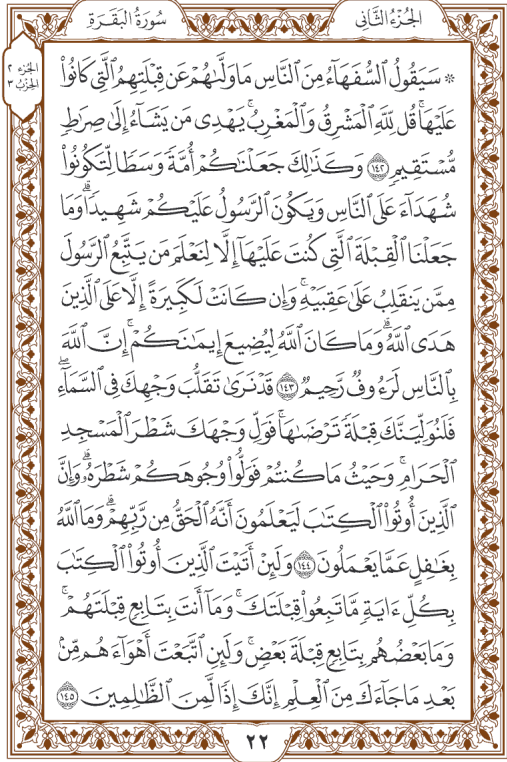 سُورَةُ البَقَرَةِ
الجُزْءُ الثَّانِي
الجزء ٢
الحزب ٣
۞ سَيَقُولُ ٱلسُّفَهَآءُ مِنَ ٱلنَّاسِ مَا وَلَّىٰهُمْ عَن قِبْلَتِهِمُ ٱلَّتِى كَانُوا۟
عَلَيْهَا ۚ قُل لِّلَّهِ ٱلْمَشْرِقُ وَٱلْمَغْرِبُ ۚ يَهْدِى مَن يَشَآءُ إِلَىٰ صِرَٰطٍ
مُّسْتَقِيمٍ ١٤٢ وَكَذَٰلِكَ جَعَلْنَٰكُمْ أُمَّةً وَسَطًا لِّتَكُونُوا۟
شُهَدَآءَ عَلَى ٱلنَّاسِ وَيَكُونَ ٱلرَّسُولُ عَلَيْكُمْ شَهِيدًا ۗ وَمَا
جَعَلْنَا ٱلْقِبْلَةَ ٱلَّتِى كُنتَ عَلَيْهَآ إِلَّا لِنَعْلَمَ مَن يَتَّبِعُ ٱلرَّسُولَ
مِمَّن يَنقَلِبُ عَلَىٰ عَقِبَيْهِ ۚ وَإِن كَانَتْ لَكَبِيرَةً إِلَّا عَلَى ٱلَّذِينَ
هَدَى ٱللَّهُ ۗ وَمَا كَانَ ٱللَّهُ لِيُضِيعَ إِيمَٰنَكُمْ ۚ إِنَّ ٱللَّهَ
بِٱلنَّاسِ لَرَءُوفٌ رَّحِيمٌ ١٤٣ قَدْ نَرَىٰ تَقَلُّبَ وَجْهِكَ فِى ٱلسَّمَآءِ ۖ
فَلَنُوَلِّيَنَّكَ قِبْلَةً تَرْضَىٰهَا ۚ فَوَلِّ وَجْهَكَ شَطْرَ ٱلْمَسْجِدِ
ٱلْحَرَامِ ۚ وَحَيْثُ مَا كُنتُمْ فَوَلُّوا۟ وُجُوهَكُمْ شَطْرَهُۥ ۗ وَإِنَّ
ٱلَّذِينَ أُوتُوا۟ ٱلْكِتَٰبَ لَيَعْلَمُونَ أَنَّهُ ٱلْحَقُّ مِن رَّبِّهِمْ ۗ وَمَا ٱللَّهُ
بِغَٰفِلٍ عَمَّا يَعْمَلُونَ ١٤٤ وَلَئِنْ أَتَيْتَ ٱلَّذِينَ أُوتُوا۟ ٱلْكِتَٰبَ
بِكُلِّ ءَايَةٍ مَّا تَبِعُوا۟ قِبْلَتَكَ ۚ وَمَآ أَنتَ بِتَابِعٍ قِبْلَتَهُمْ ۚ
وَمَا بَعْضُهُم بِتَابِعٍ قِبْلَةَ بَعْضٍ ۚ وَلَئِنِ ٱتَّبَعْتَ أَهْوَآءَهُم مِّنۢ
بَعْدِ مَا جَآءَكَ مِنَ ٱلْعِلْمِ ۙ إِنَّكَ إِذًا لَّمِنَ ٱلظَّٰلِمِينَ ١٤٥
٢٢